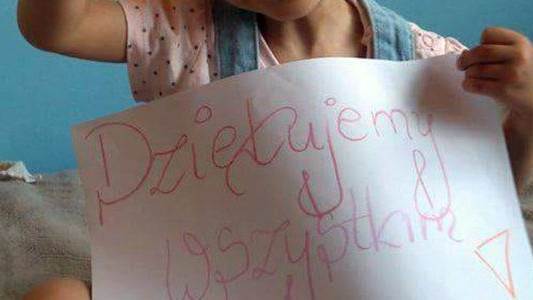 Dziękujemy
wszystkim